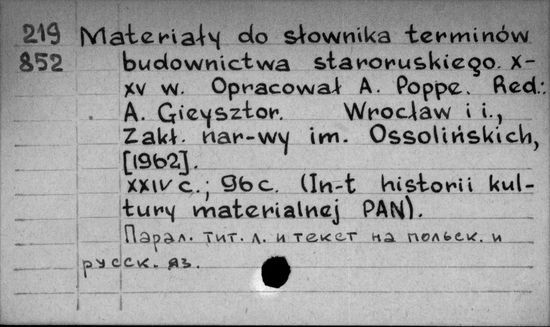 219 Materiały do słownika terminów
852 budownictwa staroruskiego. X-
XV w. Opracował A. Poppe. Red.:
A. Gieysztor. Wrocław i i.,
Zakł. nar-wy im. Ossolińskich,
[1962].
XXIV c.; 96 c. (In-t historii kul-
tury materialnej PAN).
Парал. тит. л. и текст на польск. и
русск. яз.